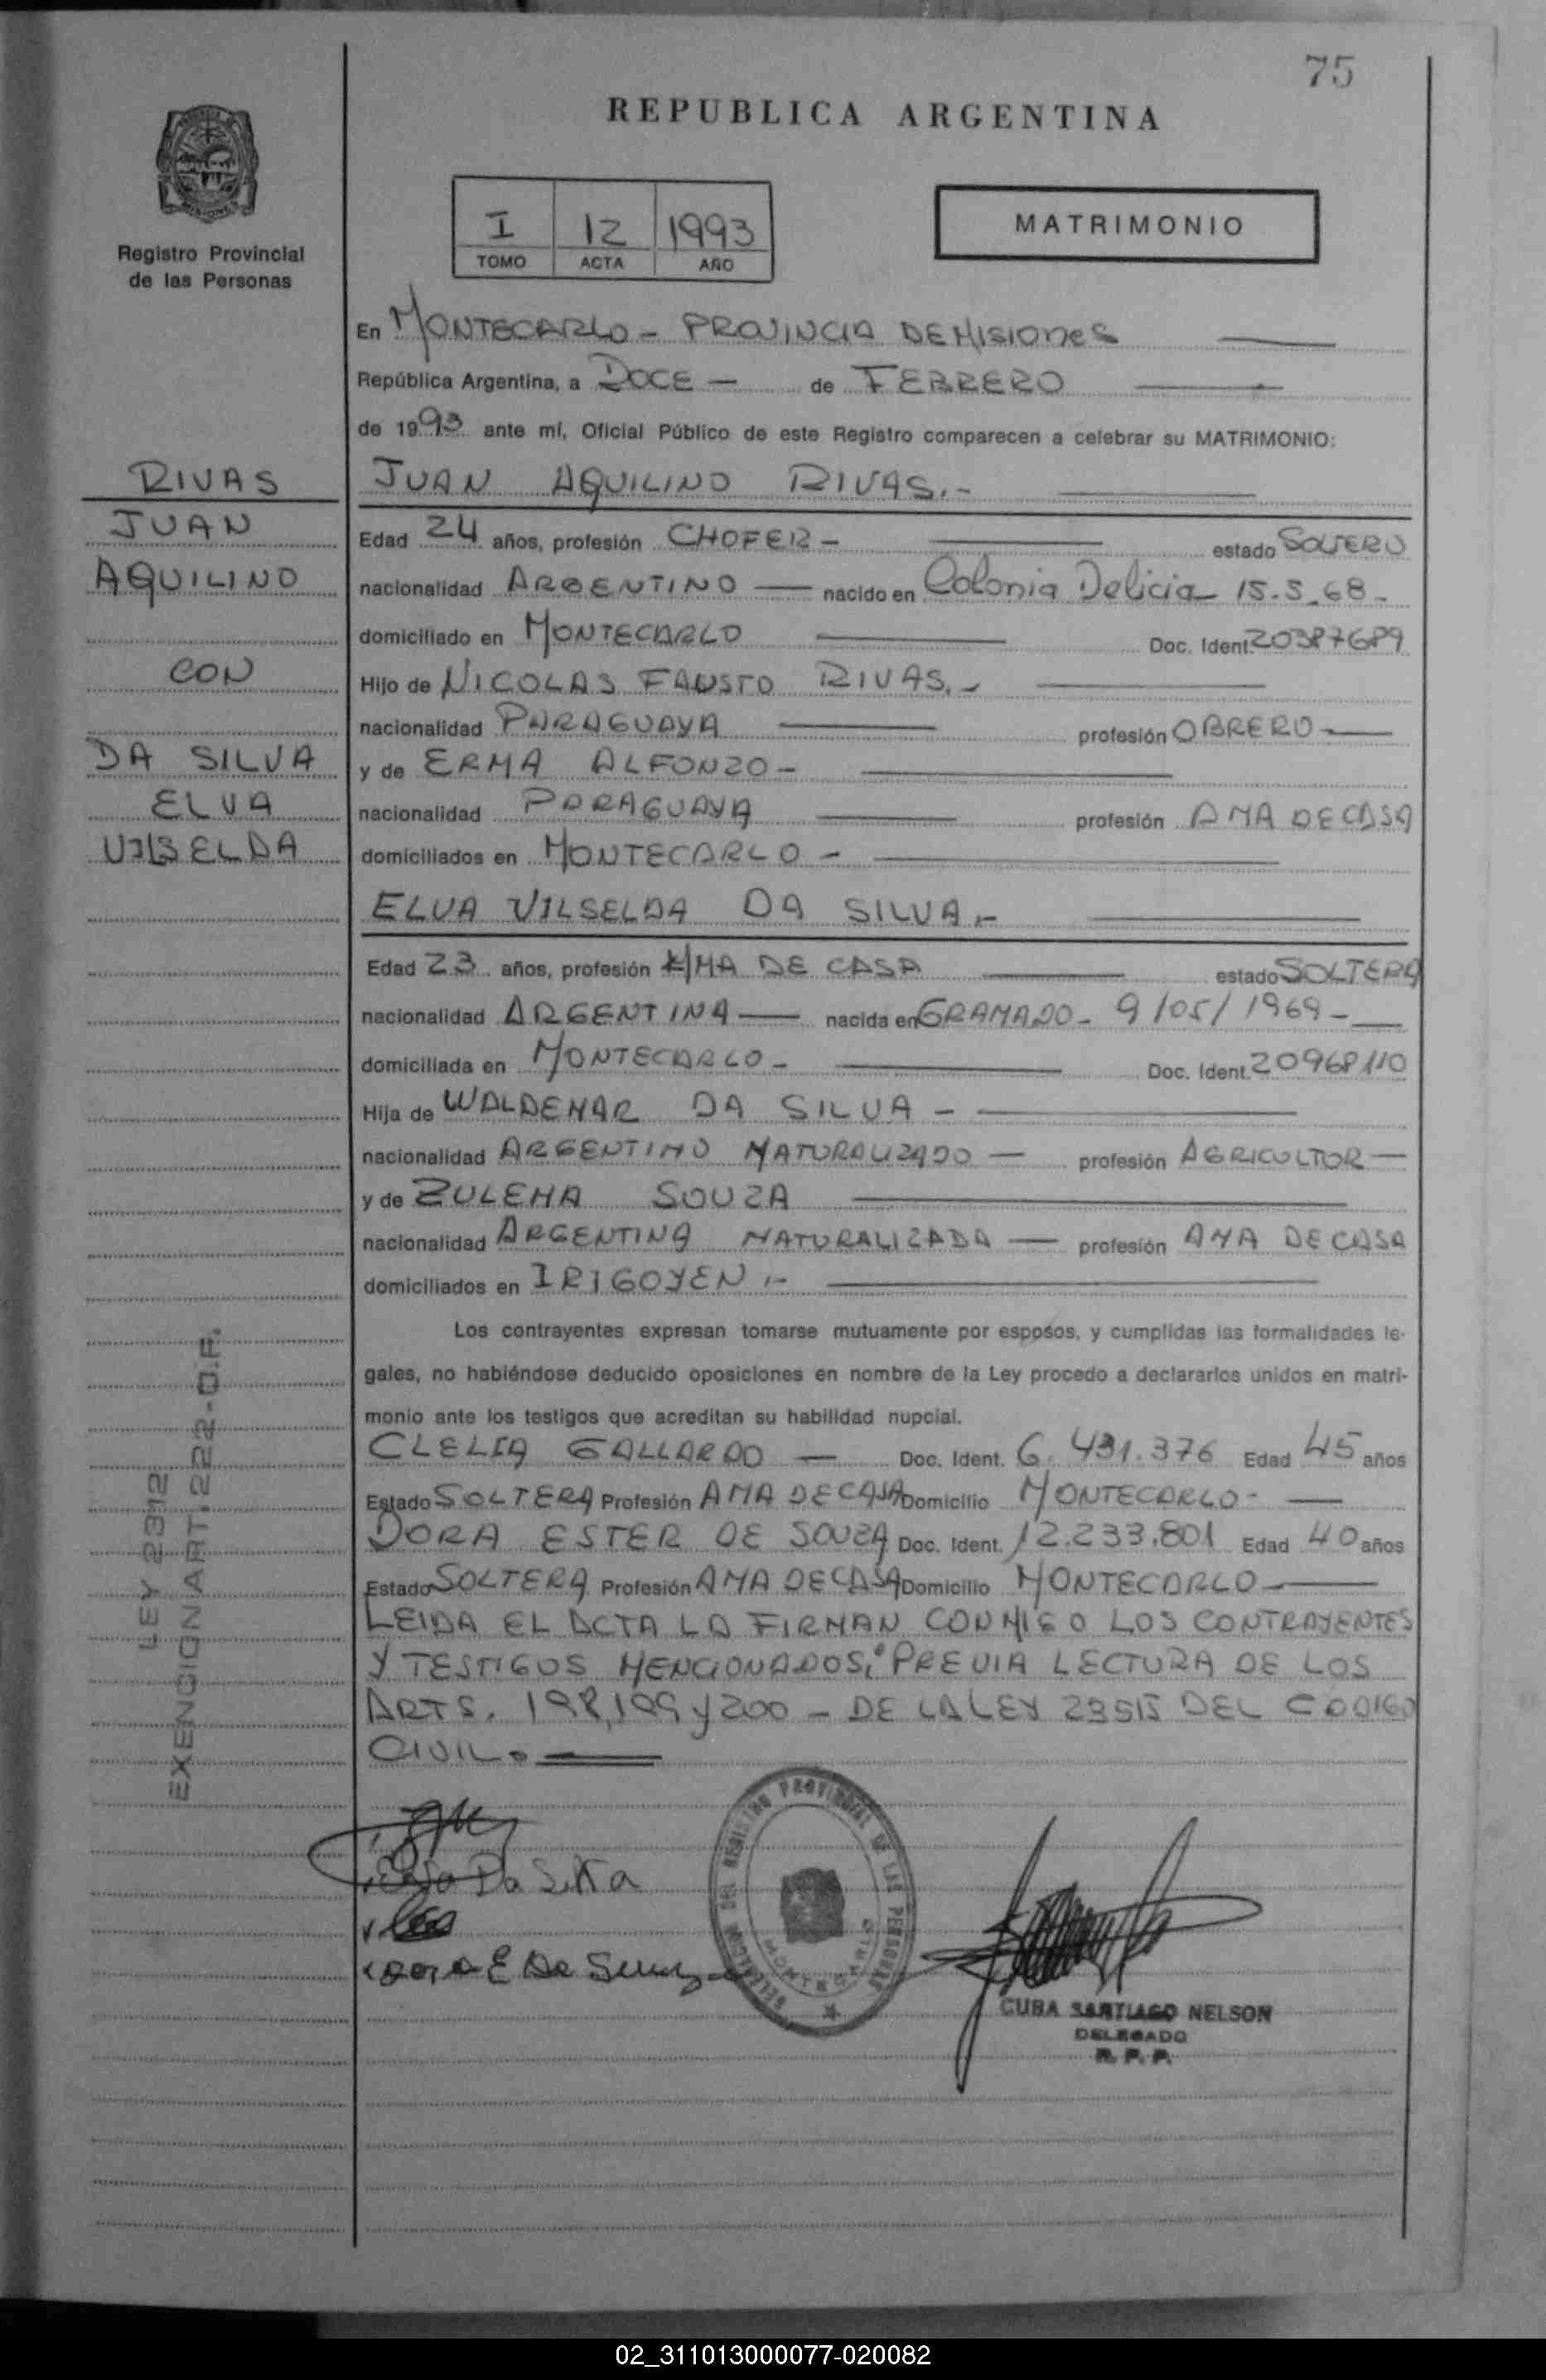 75
REPUBLICA ARGENTINA
MISIONES
Registro Provincial
de las Personas
I 12 1993
TOMO ACTA AÑO
MATRIMONIO
En MONTECARLO - PROVINCIA DE MISIONES
República Argentina, a DOCE — de FEBRERO
de 1993 ante mí, Oficial Público de este Registro comparecen a celebrar su MATRIMONIO:
RIVAS
JUAN
AQUILINO
CON
DA SILVA
ELVA
VILSELDA
JUAN AQUILINO RIVAS.-
Edad 24 años, profesión CHOFER - estado SOLTERO
nacionalidad ARGENTINO — nacido en Colonia Delicia 15.5.68-
domiciliado en MONTECARLO Doc. Ident. 20387689
Hijo de NICOLAS FAUSTO RIVAS.-
nacionalidad PARAGUAYA profesión OBRERO —
y de ERMA ALFONZO -
nacionalidad PARAGUAYA profesión AMA DE CASA
domiciliados en MONTECARLO -
ELVA VILSELDA DA SILVA.-
Edad 23 años, profesión AMA DE CASA estado SOLTERA
nacionalidad ARGENTINA — nacida en GRAMADO - 9/05/1969 -
domiciliada en MONTECARLO - Doc. Ident. 20968110
Hija de WALDEMAR DA SILVA -
nacionalidad ARGENTINO NATURALIZADO — profesión AGRICULTOR —
y de ZULEMA SOUZA
nacionalidad ARGENTINA NATURALIZADA — profesión AMA DE CASA
domiciliados en IRIGOYEN.-
Los contrayentes expresan tomarse mutuamente por esposos, y cumplidas las formalidades le-
gales, no habiéndose deducido oposiciones en nombre de la Ley procedo a declararlos unidos en matri-
monio ante los testigos que acreditan su habilidad nupcial.
CLELIA GALLARDO — Doc. Ident. 6.431.376 Edad 45 años
Estado SOLTERA Profesión AMA DE CASA Domicilio MONTECARLO -
DORA ESTER DE SOUZA Doc. Ident. 12.233.801 Edad 40 años
Estado SOLTERA Profesión AMA DE CASA Domicilio MONTECARLO -
LEIDA EL ACTA LA FIRMAN CONMIGO LOS CONTRAYENTES
Y TESTIGOS MENCIONADOS; PREVIA LECTURA DE LOS
ARTS. 198,199 y 200 - DE LA LEY 23515 DEL CODIGO
CIVIL.
LEY 2312
EXENCION ART. 22 2-O.F.
Elva Da Silva
Dora E De Souza
DELEGACION DEL REGISTRO PROVINCIAL DE LAS PERSONAS
MONTECARLO
CUBA SANTIAGO NELSON
DELEGADO
R. P. P.
02_311013000077-020082